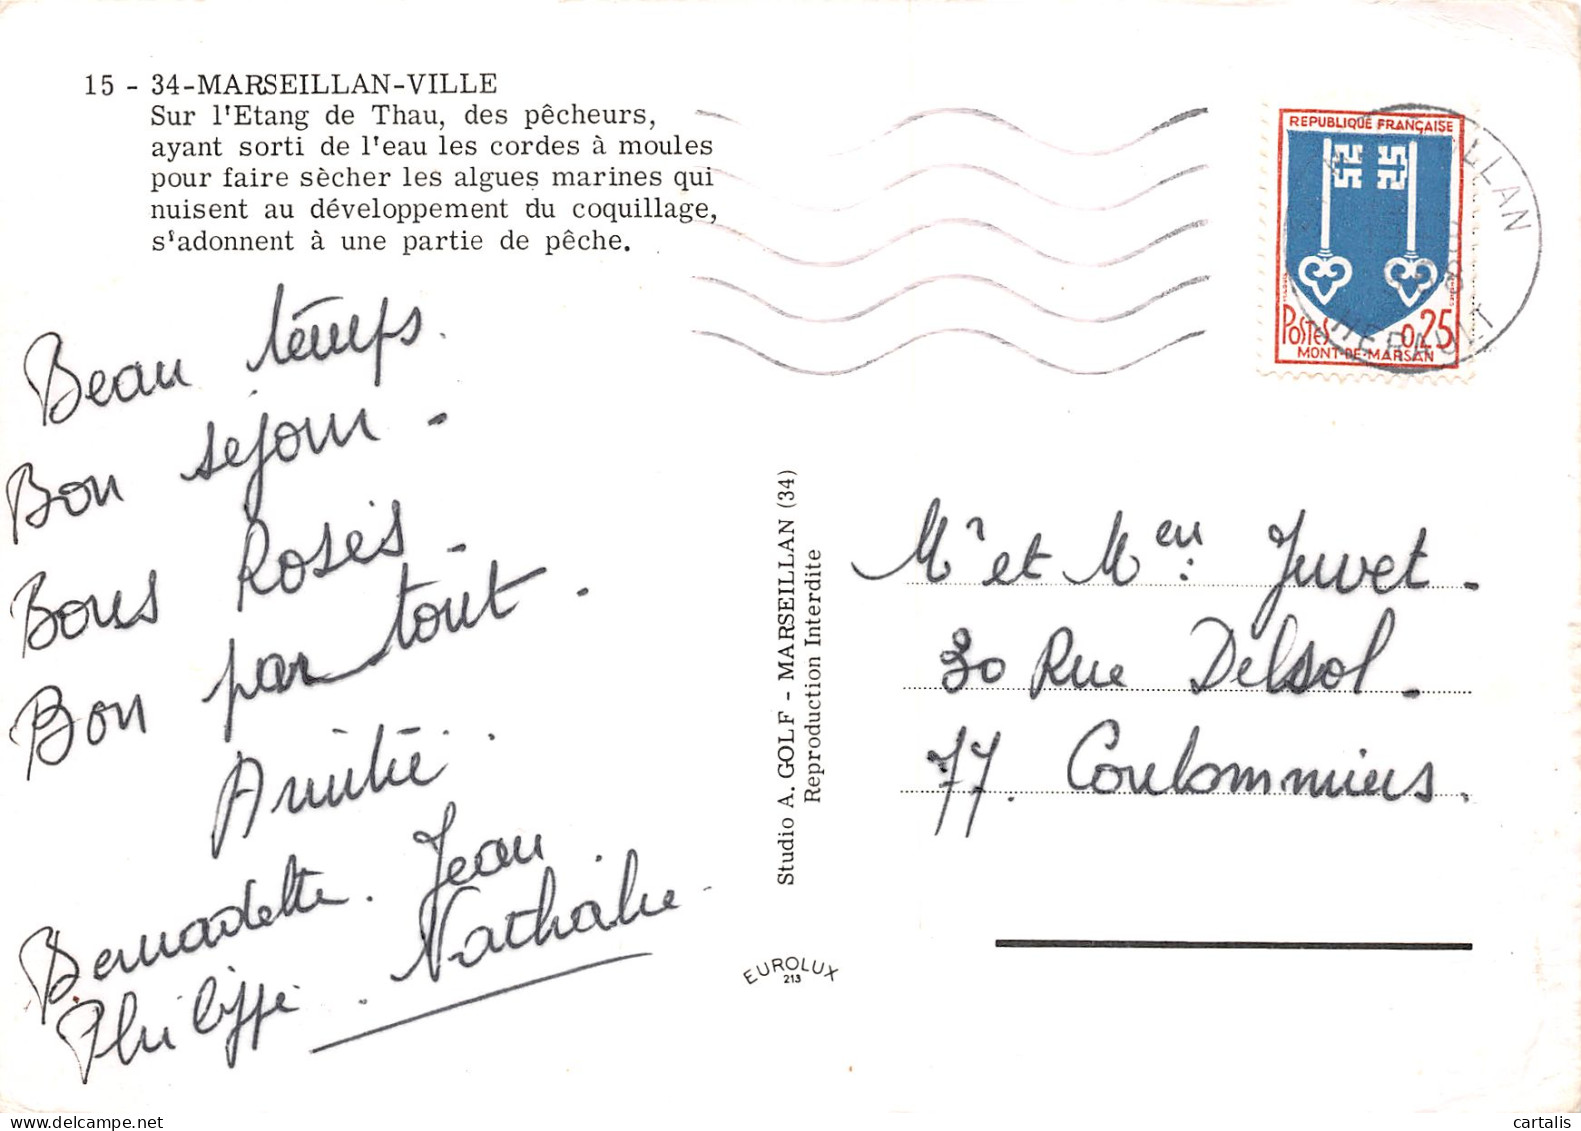 15 - 34-MARSEILLAN-VILLE
Sur l'Etang de Thau, des pêcheurs,
ayant sorti de l'eau les cordes à moules
pour faire sècher les algues marines qui
nuisent au développement du coquillage,
s'adonnent à une partie de pêche.
Beau temps.
Bon séjour -
Bons Rosés -
Bon par tout.
Amitié.
Bernadette. Jean
Philippe. Nathalie.
Studio A. GOLF - MARSEILLAN (34)
Reproduction Interdite
EUROLUX
213
REPUBLIQUE FRANÇAISE
POSTES 0,25
MONT-DE-MARSAN
HERAULT
Mr et Meu: Juvet -
30 Rue Delsol -
77. Coulommiers.
cartalis